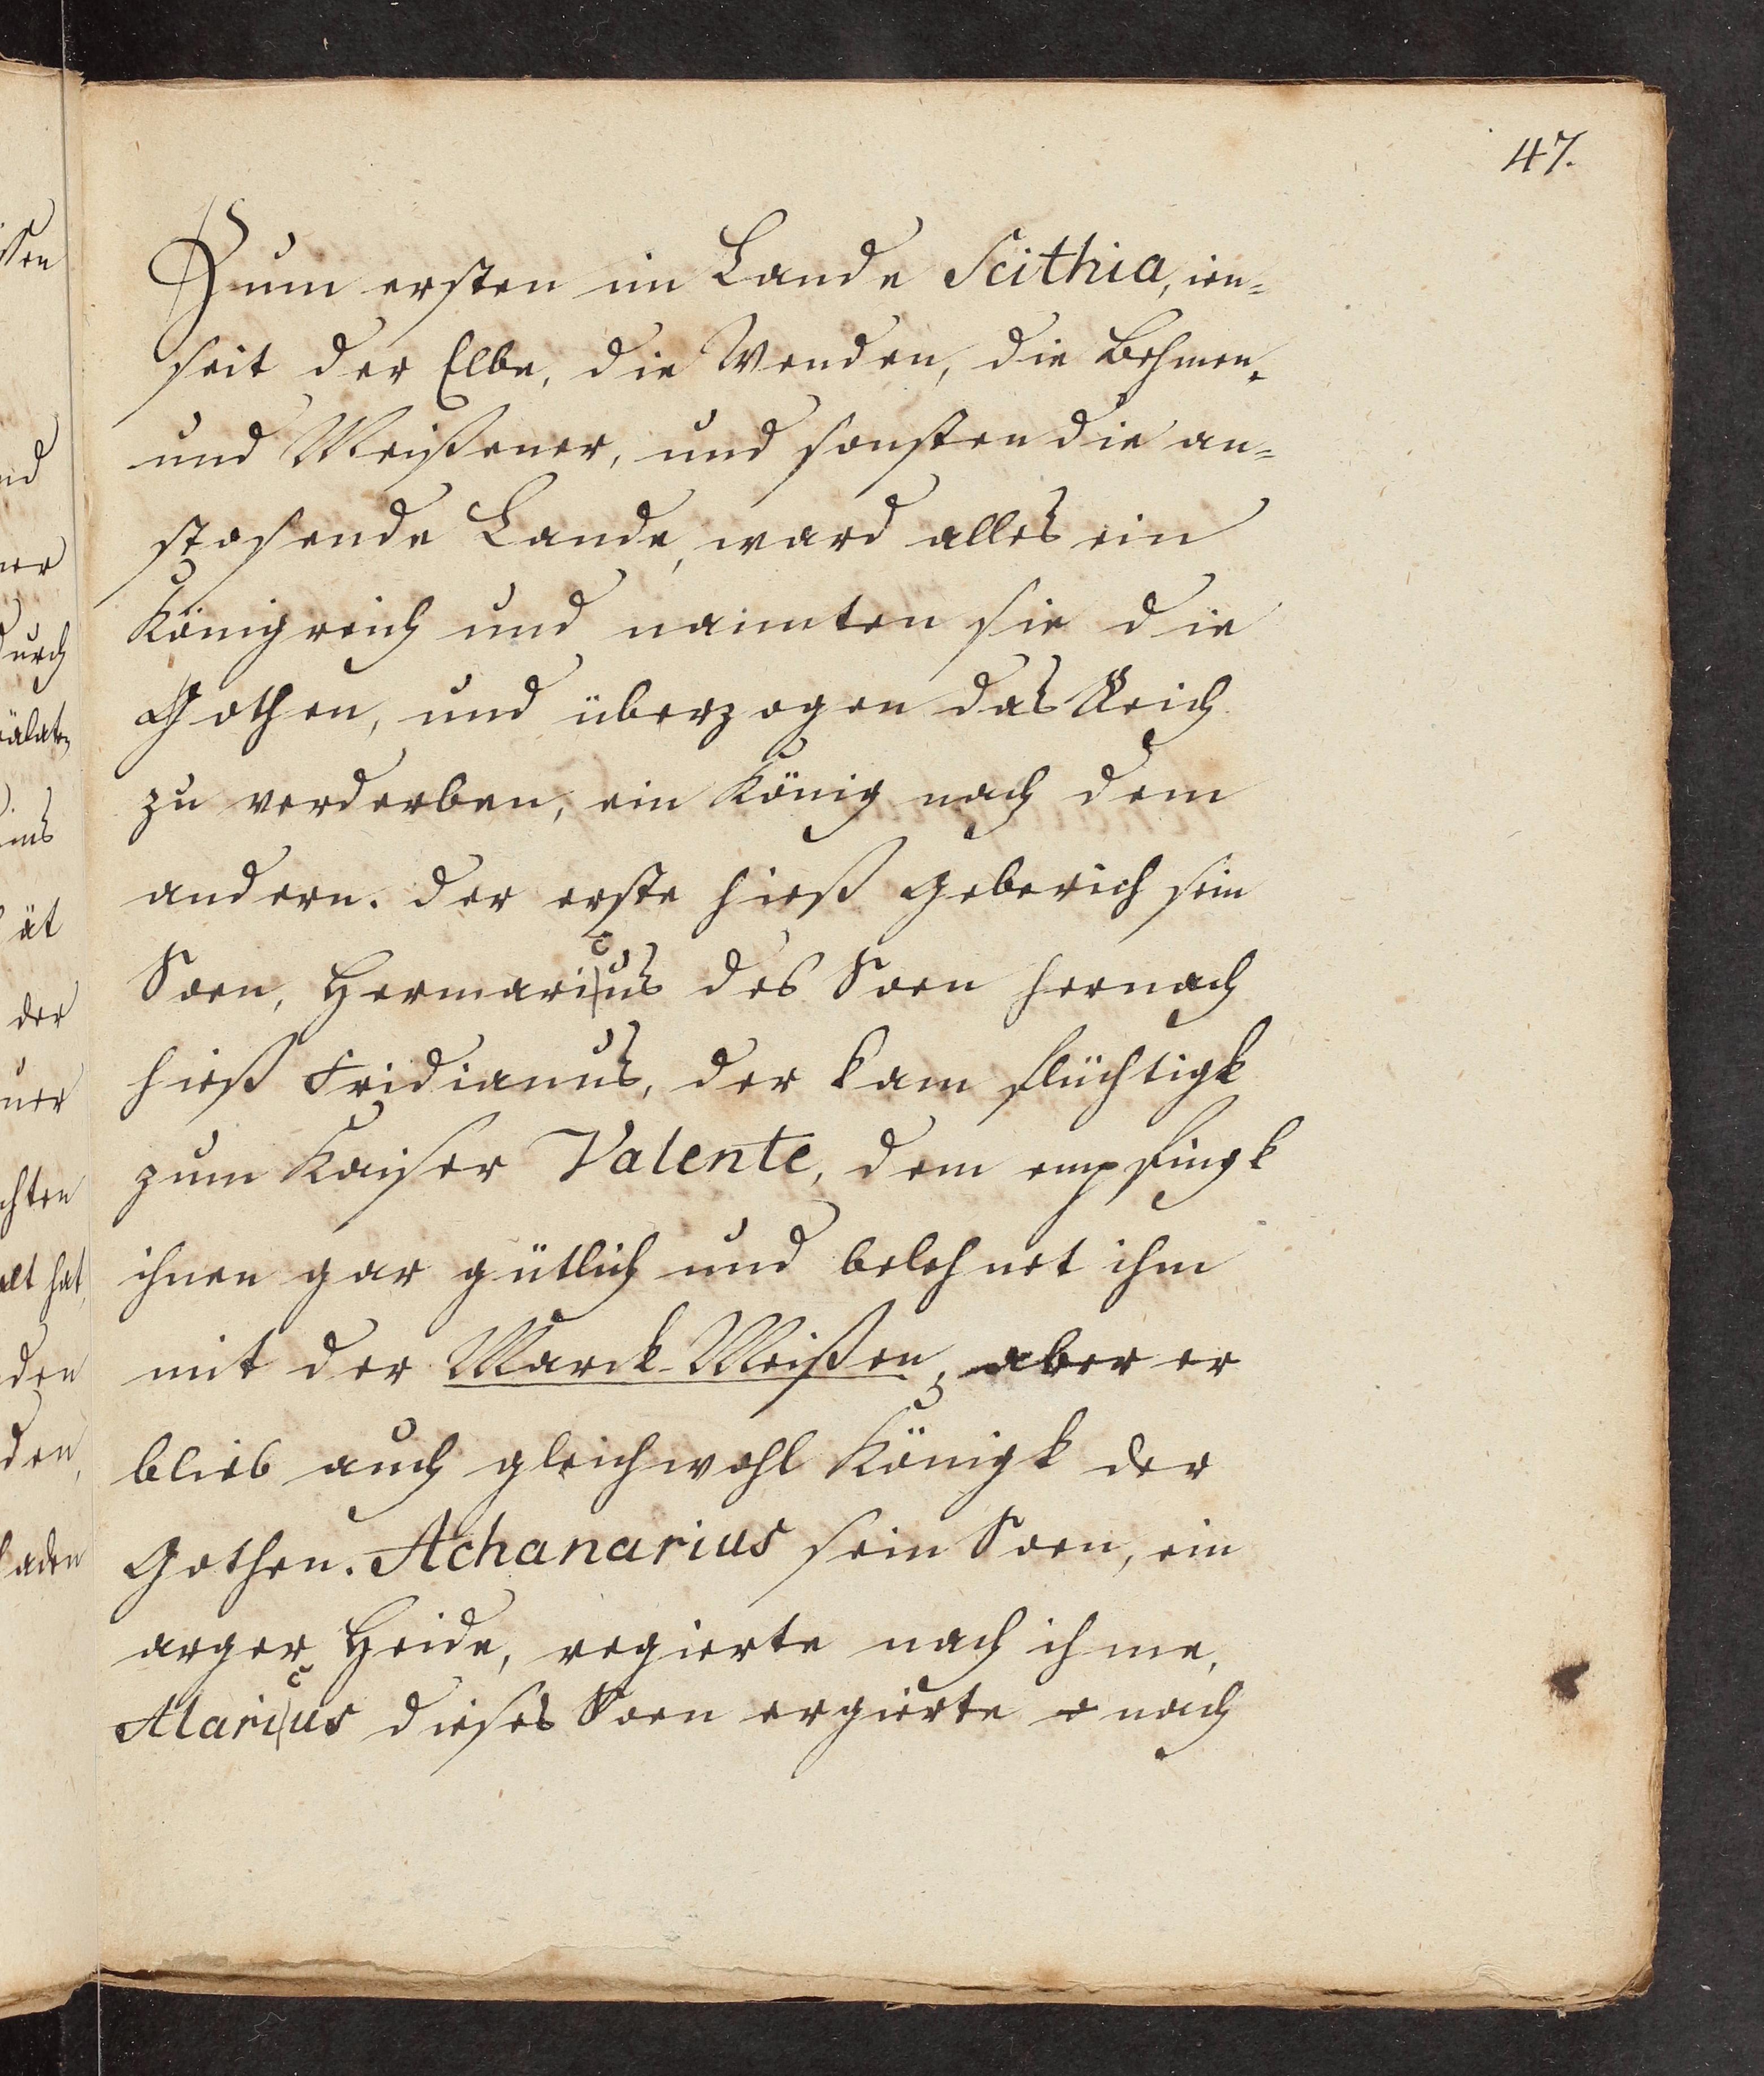 47.
Zum ersten im Lande Scithia, ien=
seit der Elbe, die Wenden, die Behmen,
und Meißener, und sonsten die an=
stosende Lande, ward alles ein
Königreich und nannten sie die
Gothen, und überzogen das Reich
zu verderben, ein König nach dem
andern. der erste hieß Geberich sein
Soen, Hermaricus des Soen hernach
hieß Fridianus, der kam flüchtigk
zum Kaiser Valente, dem empfingk
ihnen gar gütlich und belehnet ihm
mit der Marck-Meißen, aber er
blieb auch gleichwohl Königk der
Gothen. Achanarius sein Soen, ein
arger Heide, regierte nach ihme,
Alaricus dieses Soen ergierte nach